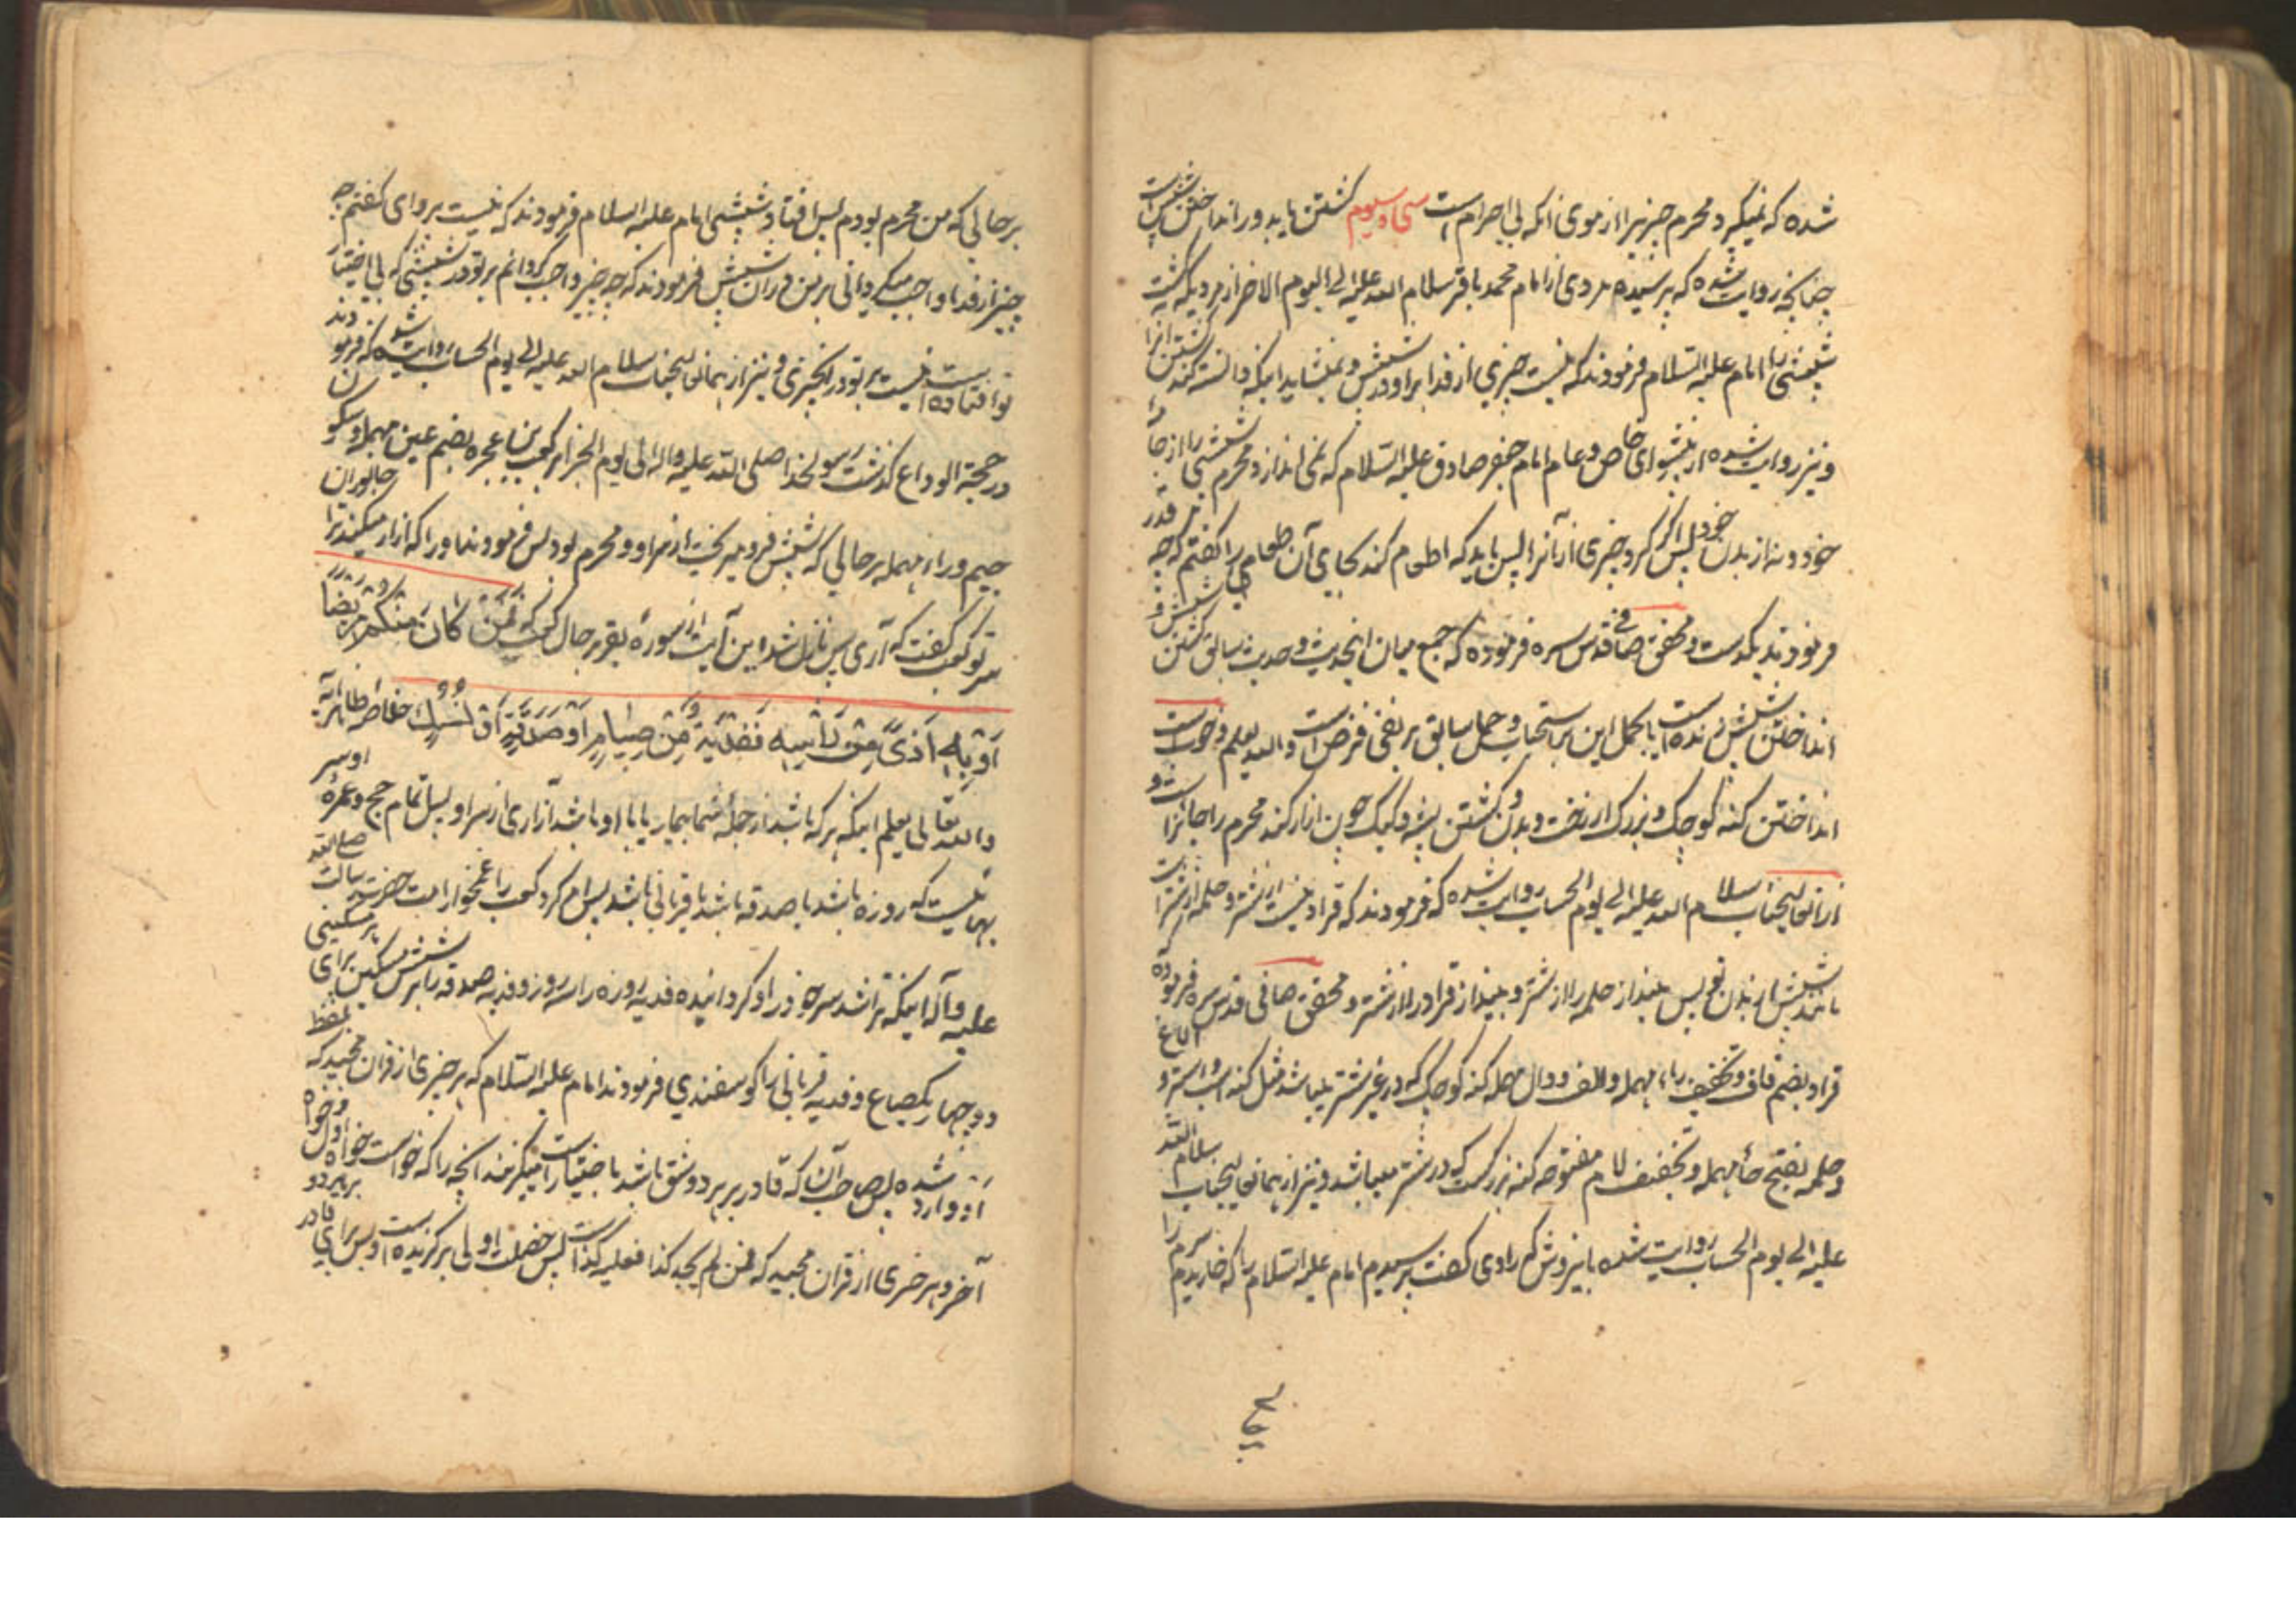 شده که نمیگیرد محرم چیزیرا از موی زانکه بی احرام است سی و سیوم کشتن یا بدور انداختن شپش است
چنانچه روایت شده که پرسیده مردی از امام محمد باقر سلام الله علیه الی الیوم الاخر از مردیکه کشت
شپشی را امام علیه السلام فرمودند که نیست چیزی از فدا بر او در شپش و نمیشاید اینکه دانسته کند کشتن انرا
و نیز روایت شده از پیشوای خاص و عام امام جعفر صادق علیه السلام که نمی اندازد محرم شپشی را از جامهٔ
خود و نه از بدن خود پس اگر کرد چیزی از آنرا پس باید که اطعام کند بجای آن طعامی را گفتم که چه قدر
فرمودند یکدست و محقق صافی قدس سره فرموده که جمع میان اینحدیث و حدیث سابق کشتن شپش و
انداختن شپش زنده است یا بحمل این بر استحباب و حمل سابق بر نفی فرض است والله یعلم و خوب است
انداختن کنه کوچک و بزرک از رخت و بدن و کشتن پشه و کیک چون ازار کند محرم را جائز است و
از انعالیجناب سلام الله علیه الی یوم الحساب روایت شده که فرمودند که قراد نیست از شتر و حلمه از شتر است
مانند شپش از بدن تو پس مینداز حلمه را از شتر و بینداز قراد را از شتر و محقق صافی قدس سره فرموده
قراد بضم قاف و تخفیف راء مهمله و الف و دال مهمله کنه کوچک که در غیر شتر میباشد مثل کنه اسب و استر و الاغ
و حلمه بفتح حاء مهمله و تخفیف لام مفتوحه کنه بزرکست که در شتر میباشد و نیز از همان عالیجناب سلام الله
علیه الی یوم الحساب روایت شده باینروش که راوی گفت پرسیدم امام علیه السلام را که خاریدم سرم را
بر حالی که من محرم بودم پس افتاد شپشی امام علیه السلام فرمودند که نیست پروای گفتم چه
چیز از فدا واجب میکردانی بر من در آن شپش فرمودند که چه چیز واجب کردانم بر تو در شپشی که بی اختیار
تو افتاده است نیست بر تو در ان چیزی و نیز از همان عالیجناب سلام الله علیه الی یوم الحساب روایت شده که فرمودند
در حجة الوداع گذشت رسولخدا صلی الله علیه واله الی یوم الجزا بر کعب بن عجره بضم عین مهمله و سکون
جیم و راء مهمله بر حالی که شپش فرو میریخت از سر او و محرم بود پس فرمودند او را که ازار میکنند ترا جانوران
سر تو کعب گفت که آری پس نازل شد این آیت از سورهٔ بقره بر حال کعب که فَمَنْ كَانَ مِنْكُمْ مَرِيضًا
أَوْ بِهِ أَذًى مِنْ رَأْسِهِ فَفِدْيَةٌ مِنْ صِيَامٍ أَوْ صَدَقَةٍ أَوْ نُسُكٍ خلاصه ظاهر آیه
والله تعالی یعلم اینکه هر که باشد از جملهٔ شما بیمار یا با او باشد آزاری از سر او پس اتمام حج و عمرهٔ او سر
بهائیست که روزه باشد یا صدقه باشد یا قربانی باشد پس امر کرد کعب را غمخوار امت حضرت رسالت صلی الله
علیه وآله اینکه تراشد سر خود را و کردانیده فدیه روزه را سه روز و فدیه صدقه را بر شش مسکین برای هر مسکینی
دو چهار یکصاع و فدیه قربانی را کوسفندی فرمودند امام علیه السلام که هر چیزی از قران مجید که بلفظ
او وارد شده پس صاحب آن که قادر بر هر دو شق باشد با ختیار است میگزیند انچه را که خواست خواه اول و خواه
آخر و هر چیزی از قران مجید که فمن لم یجد کذا فعلیه کذا است پس خصلت اولی برگزیده است و پس برای قادر بر هر دو